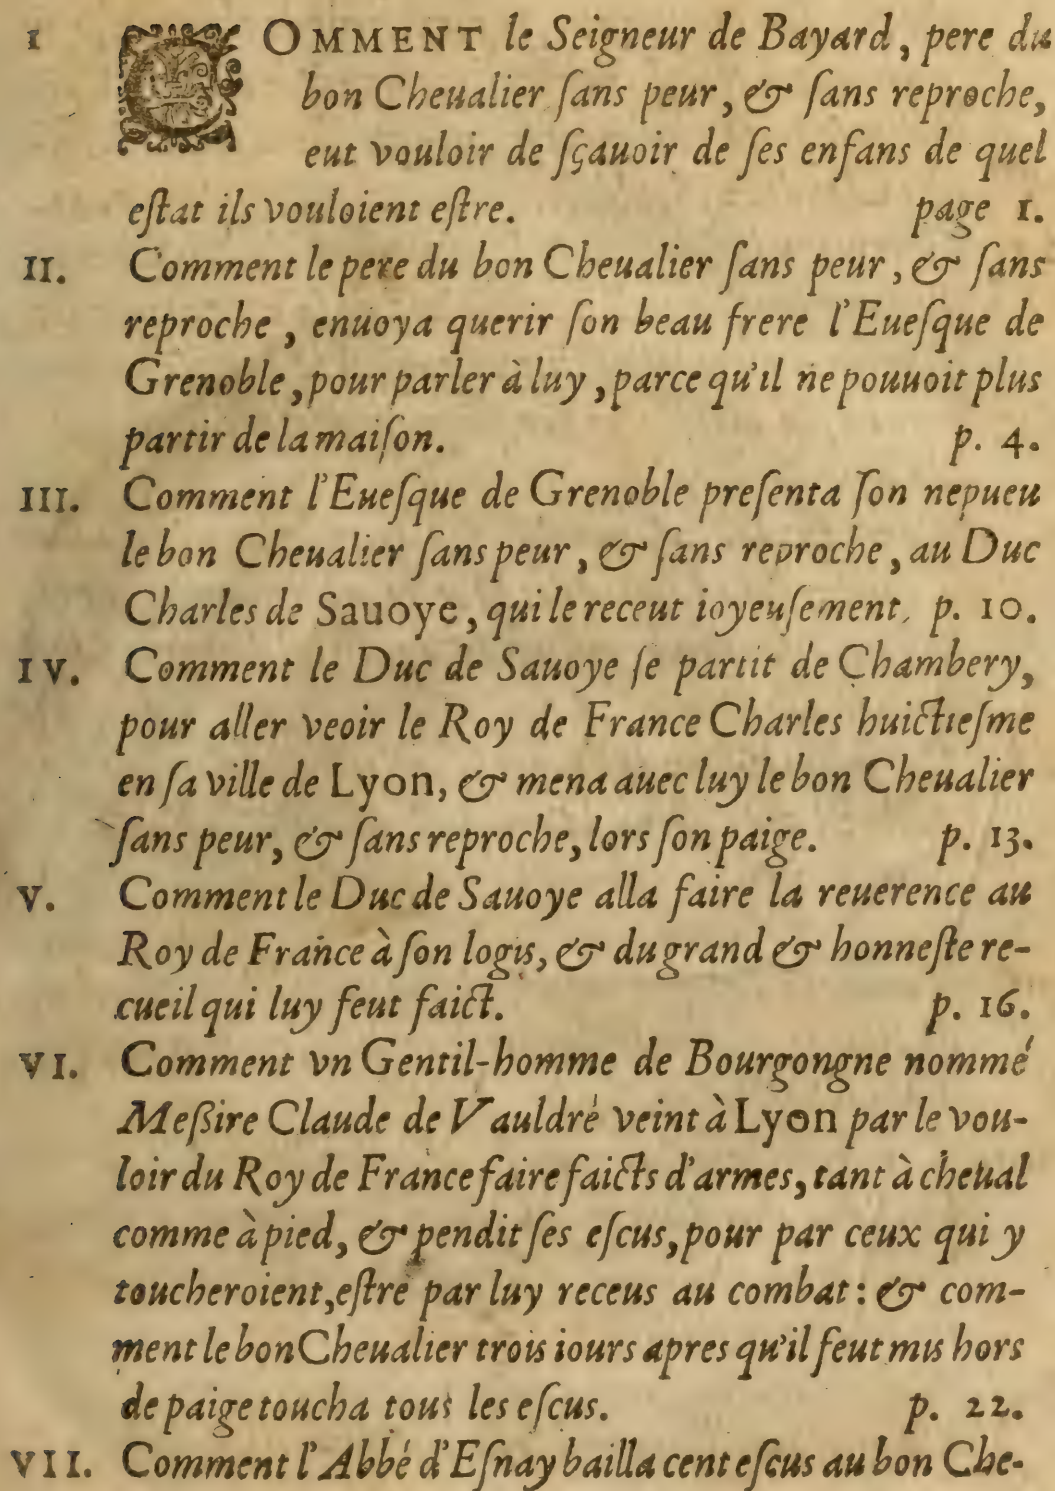 I COMMENT le Seigneur de Bayard, pere du
bon Cheualier ſans peur, & ſans reproche,
eut vouloir de ſçauoir de ſes enfans de quel
eſtat ils vouloient eſtre. page I.
II. Comment le pere du bon Cheualier ſans peur, & ſans
reproche, enuoya querir ſon beau frere l'Eueſque de
Grenoble, pour parler à luy, parce qu'il ne pouuoit plus
partir de la maiſon. p. 4.
III. Comment l'Eueſque de Grenoble preſenta ſon nepueu
le bon Cheualier ſans peur, & ſans reproche, au Duc
Charles de Sauoye, qui le receut ioyeuſement. p. 10.
IV. Comment le Duc de Sauoye ſe partit de Chambery,
pour aller veoir le Roy de France Charles huictieſme
en ſa ville de Lyon, & mena auec luy le bon Cheualier
ſans peur, & ſans reproche, lors ſon paige. p. 13.
V. Comment le Duc de Sauoye alla faire la reuerence au
Roy de France à ſon logis, & du grand & honneſte re-
cueil qui luy feut faict. p. 16.
VI. Comment vn Gentil-homme de Bourgongne nommé
Meſsire Claude de Vauldré veint à Lyon par le vou-
loir du Roy de France faire faicts d'armes, tant à cheual
comme à pied, & pendit ſes eſcus, pour par ceux qui y
toucheroient, eſtre par luy receus au combat: & com-
ment le bon Cheualier trois iours apres qu'il feut mis hors
de paige toucha tous les eſcus. p. 22.
VII. Comment l'Abbé d'Eſnay bailla cent eſcus au bon Che-